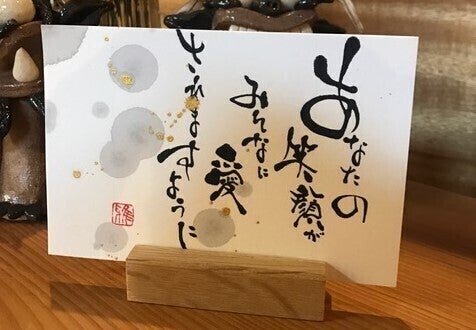 あなたの
笑顔が
みんなに
愛
されますように